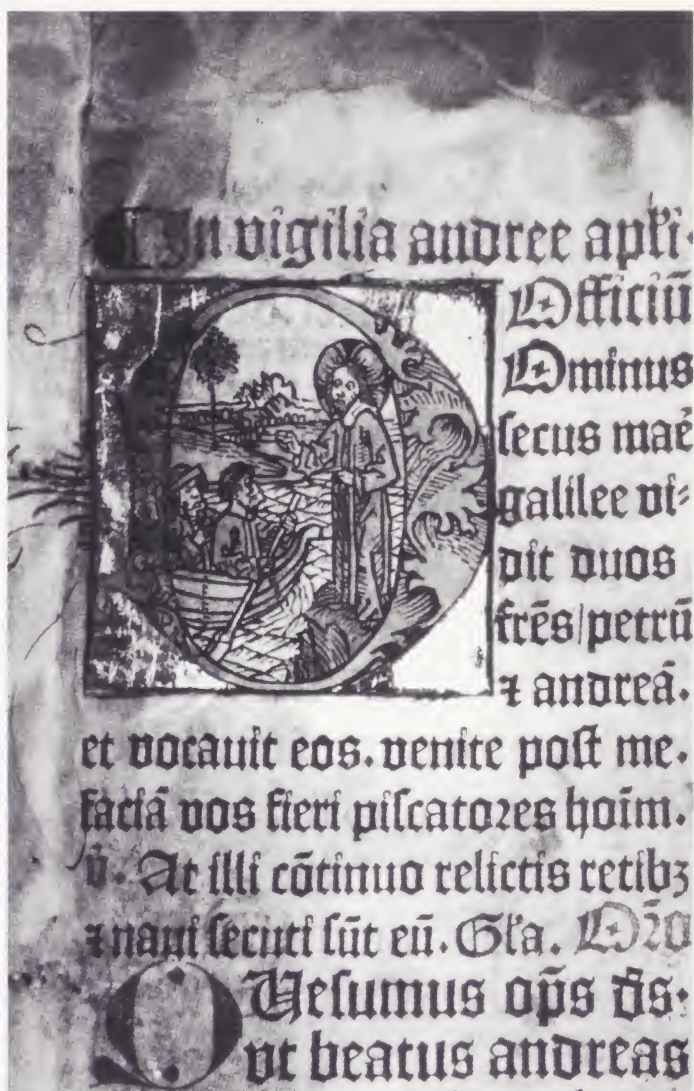 In vigilia andree apłi.
Officiū
Ominus
secus maē
galilee vi⸗
dit duos
frēs/petrū
⁊ andreā.
et vocauit eos. venite post me.
faciā vos fieri piscatores hoīm.
v̄. At illi cōtinuo relictis retibꝫ
⁊ naui secuti sūt eū. Gła. Oro
QUesumus ops̄ ds̄.
vt beatus andreas